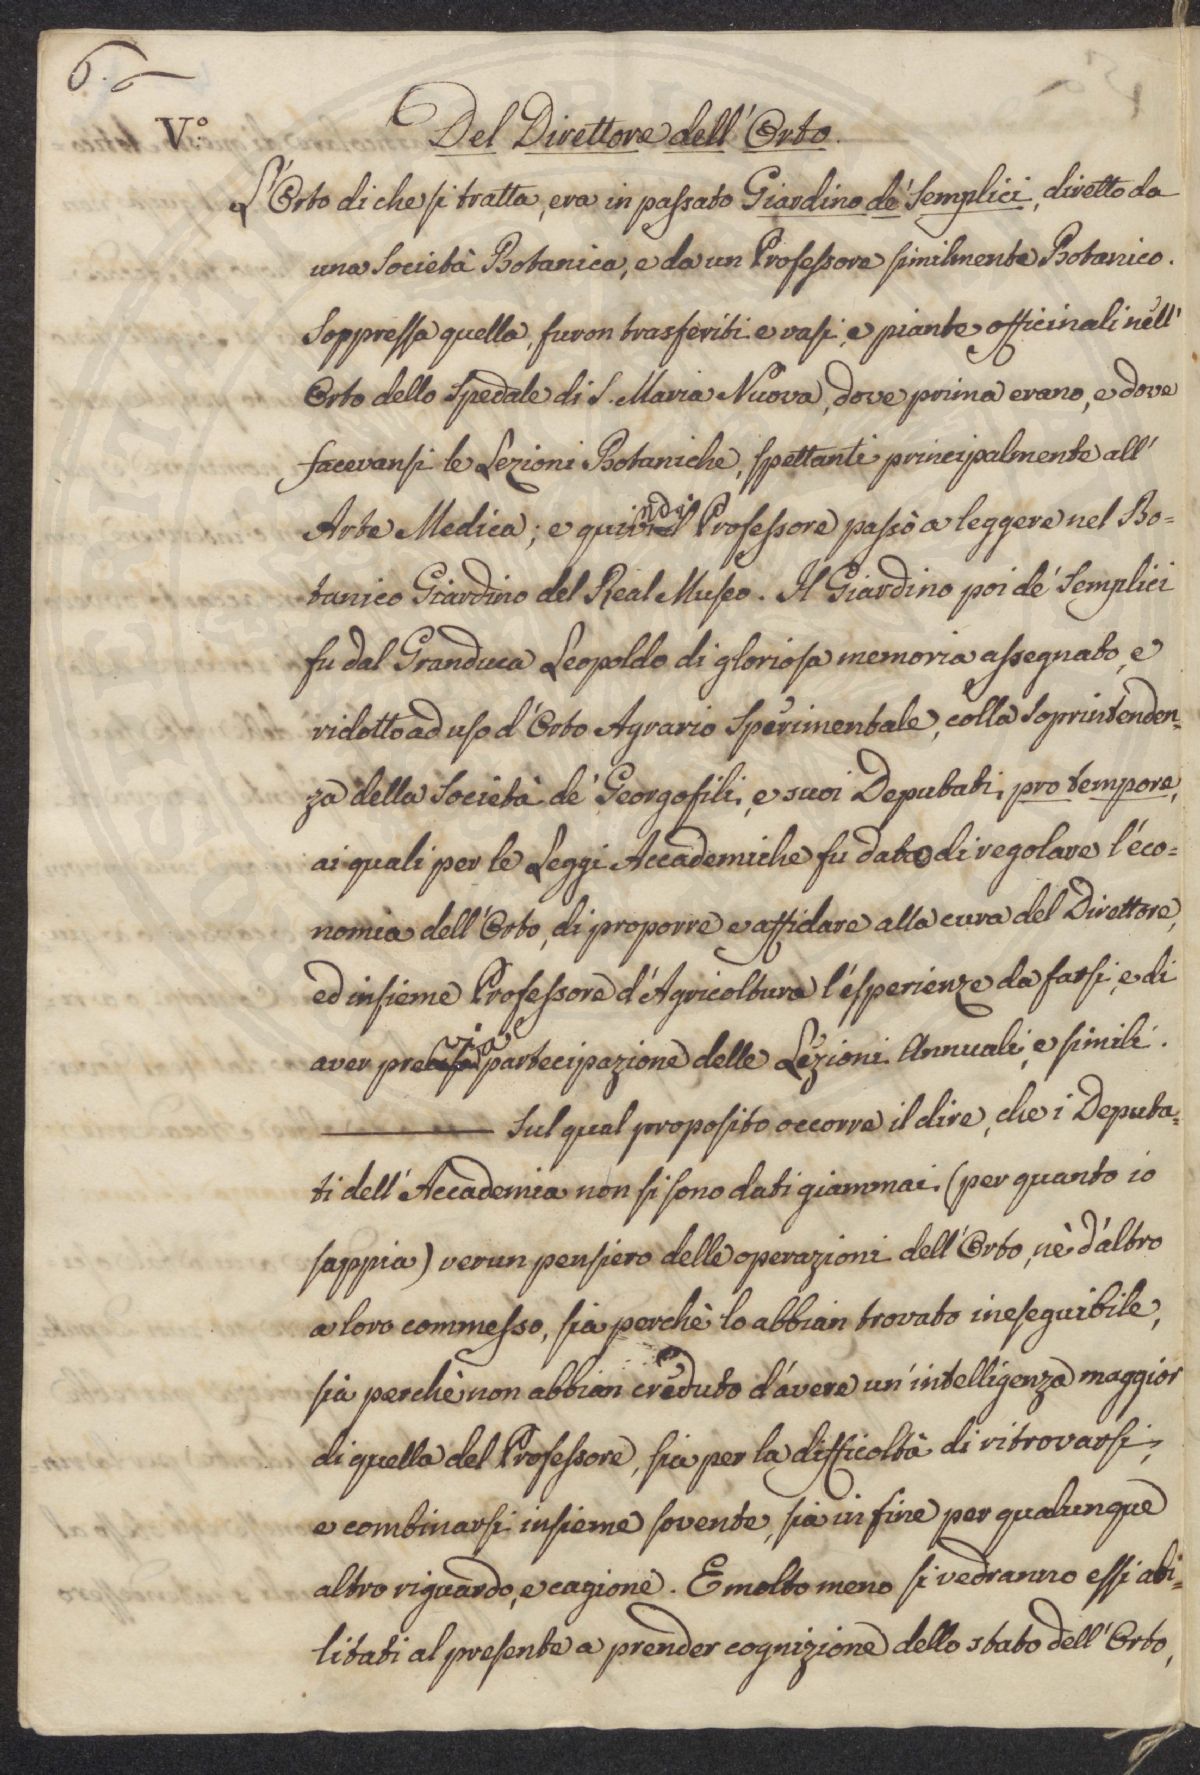 6.
V.° Del Direttore dell'Orto.
L'Orto di che si tratta, era in passato Giardino de' Semplici, diretto da
una Società Botanica, e da un Professore similmente Botanico.
Soppressa quella, furon trasferiti e vasi, e piante officinali nell'
Orto dello Spedale di S. Maria Nuova, dove prima erano, e dove
facevansi le Lezioni Botaniche, spettanti principalmente all'
Arte Medica; e quindi il Professore passò a leggere nel Bo=
tanico Giardino del Real Museo. Il Giardino poi de' Semplici
fu dal Granduca Leopoldo di gloriosa memoria assegnato, e
ridotto ad uso d'Orto Agrario Sperimentale, colla Soprintenden=
za della Società de' Georgofili, e suoi Deputati, pro tempore,
ai quali per le Leggi Accademiche fu dato di regolare l'eco=
nomia dell'Orto, di proporre e affidare alla cura del Direttore,
ed insieme Professore d'Agricoltura l'esperienze da farsi, e di
aver previa partecipazione delle Lezioni Annuali, e simili.
Sul qual proposito occorre il dire, che i Deputa=
ti dell'Accademia non si sono dati giammai (per quanto io
sappia) verun pensiero delle operazioni dell'Orto, nè d'altro
a loro commesso, sia perchè lo abbian trovato ineseguibile,
sia perchè non abbian creduto d'avere un'intelligenza maggior
di quella del Professore, sia per la difficoltà di ritrovarsi,
e combinarsi insieme sovente, sia in fine per qualunque
altro riguardo, e cagione. E molto meno si vedranno essi abi=
litati al presente a prender cognizione dello stato dell'Orto,